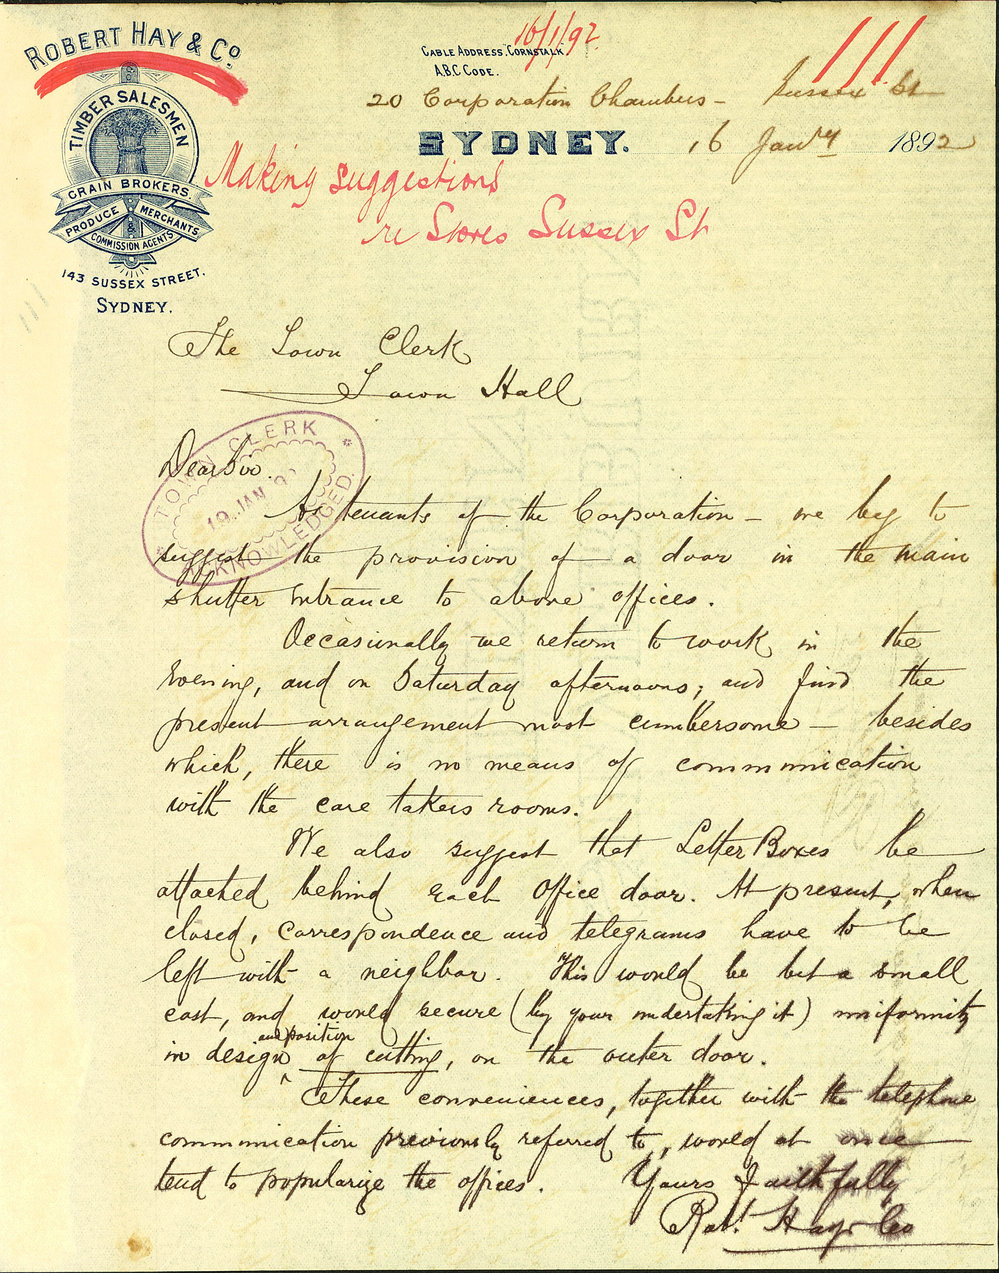 ROBERT HAY & Co.
TIMBER SALESMEN
GRAIN BROKERS
PRODUCE & MERCHANTS
COMMISSION AGENTS
143 SUSSEX STREET.
SYDNEY.
16/1/92
CABLE ADDRESS. CORNSTALK.
A.B.C CODE.
111
20 Corporation Chambers – Sussex St
SYDNEY. 16 Jany 1892
Making suggestions
re Stores Sussex St
The Town Clerk
Town Hall
TOWN CLERK
19 JAN 9
ACKNOWLEDGED.
Dear Sir.
As tenants of the Corporation – we beg to
suggest the provision of a door in the main
shutter entrance to above offices.
Occasionally we return to work in the
Evening, and on Saturday afternoons; and find the
present arrangement most cumbersome – besides
which, there is no means of communication
with the care takers rooms.
We also suggest that Letter Boxes be
attached behind each office door. At present, when
closed, correspondence and telegrams have to be
left with a neighbor. This would be but a small
cost, and would secure (by your undertaking it) uniformity
in design and position of cutting, on the outer door.
These conveniences, together with the telephone
communication previously referred to, would at once
tend to popularize the offices. Yours faithfully
Robt. Hay & Co